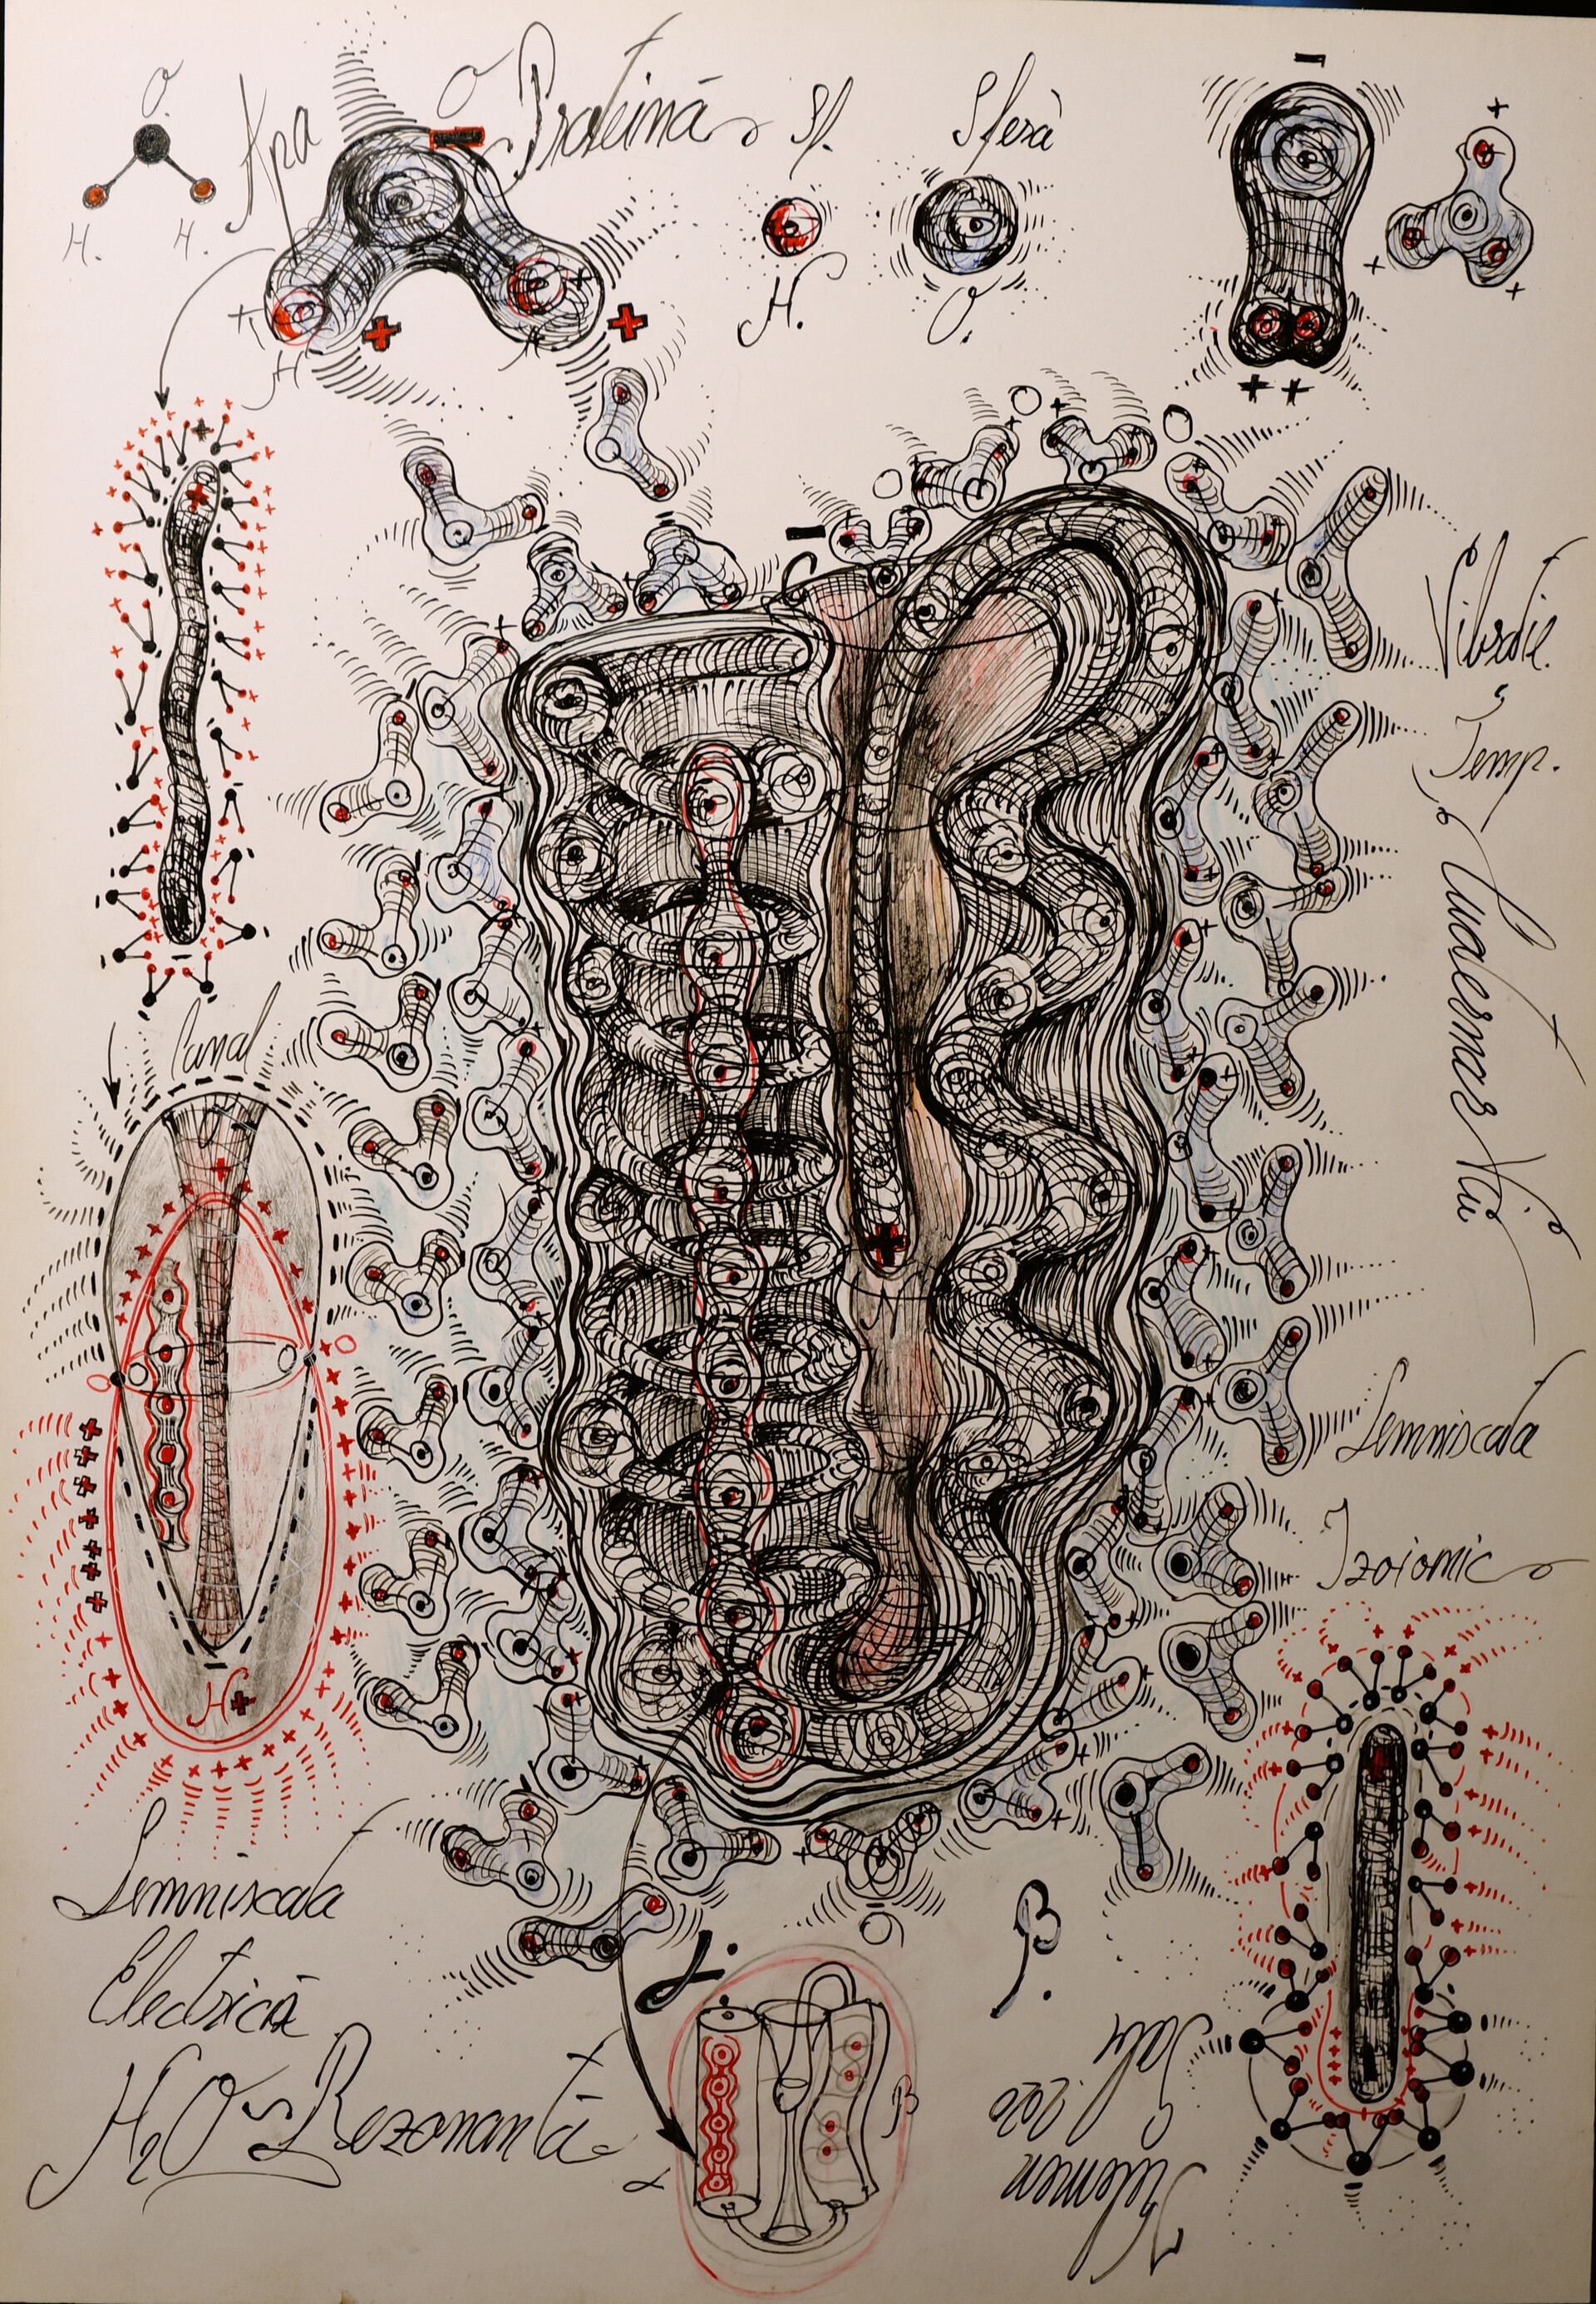 O.
H. H.
Apa
O
Proteină
Sf.
Sferă
H.
O.
H
H
Vibrație
Temp.
Cuaternar Viu
Canal
H+
Lemniscata
Izoionic
Lemniscata
Electrică
H2O Rezonantă
α.
β.
α
β